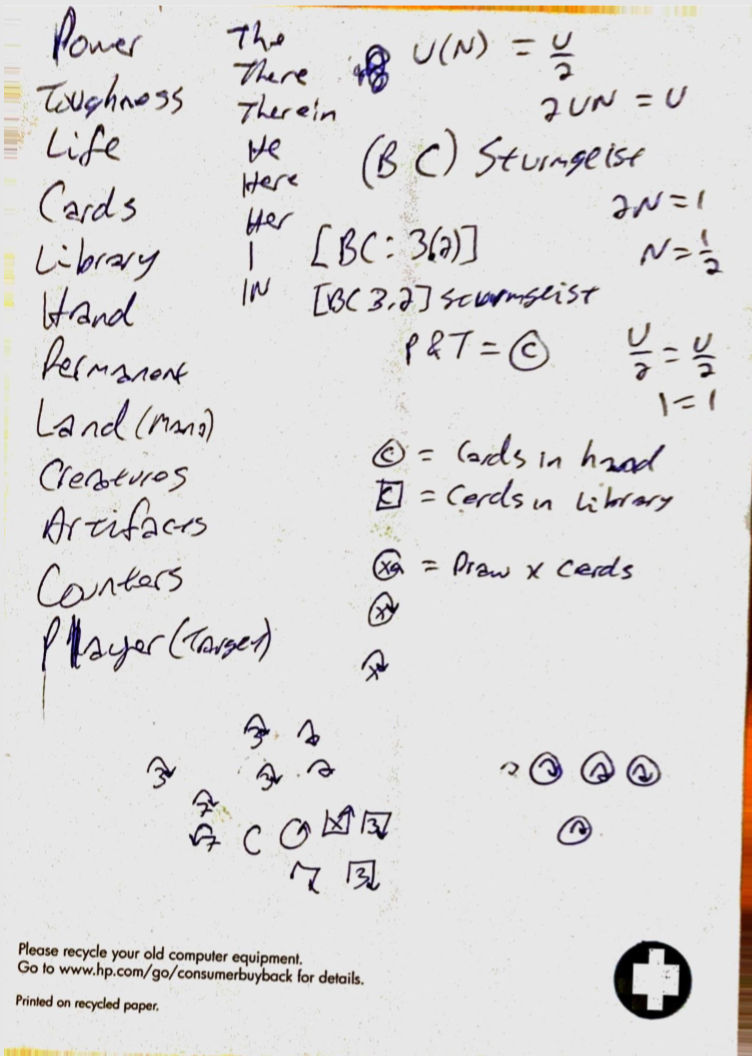 Power
Toughness
Life
Cards
Library
Hand
Permanent
Land (Mana)
Creatures
Artifacts
Counters
Player (Target)
The
There
Therein
He
Here
Her
I
IN
U(N) = U/2
2UN = U
(BC) Sturmgeist
2N = 1
[BC: 3(2)]
N = 1/2
[BC 3,2] Sturmgeist
P & T = Ⓒ
U/2 = U/2
1 = 1
Ⓒ = Cards in hand
C = Cards in Library
= Draw x cards
x
x
3 2
3 3 2
7
7 C X 3
7 3
2 2 2 2
2
Please recycle your old computer equipment.
Go to www.hp.com/go/consumerbuyback for details.
Printed on recycled paper.